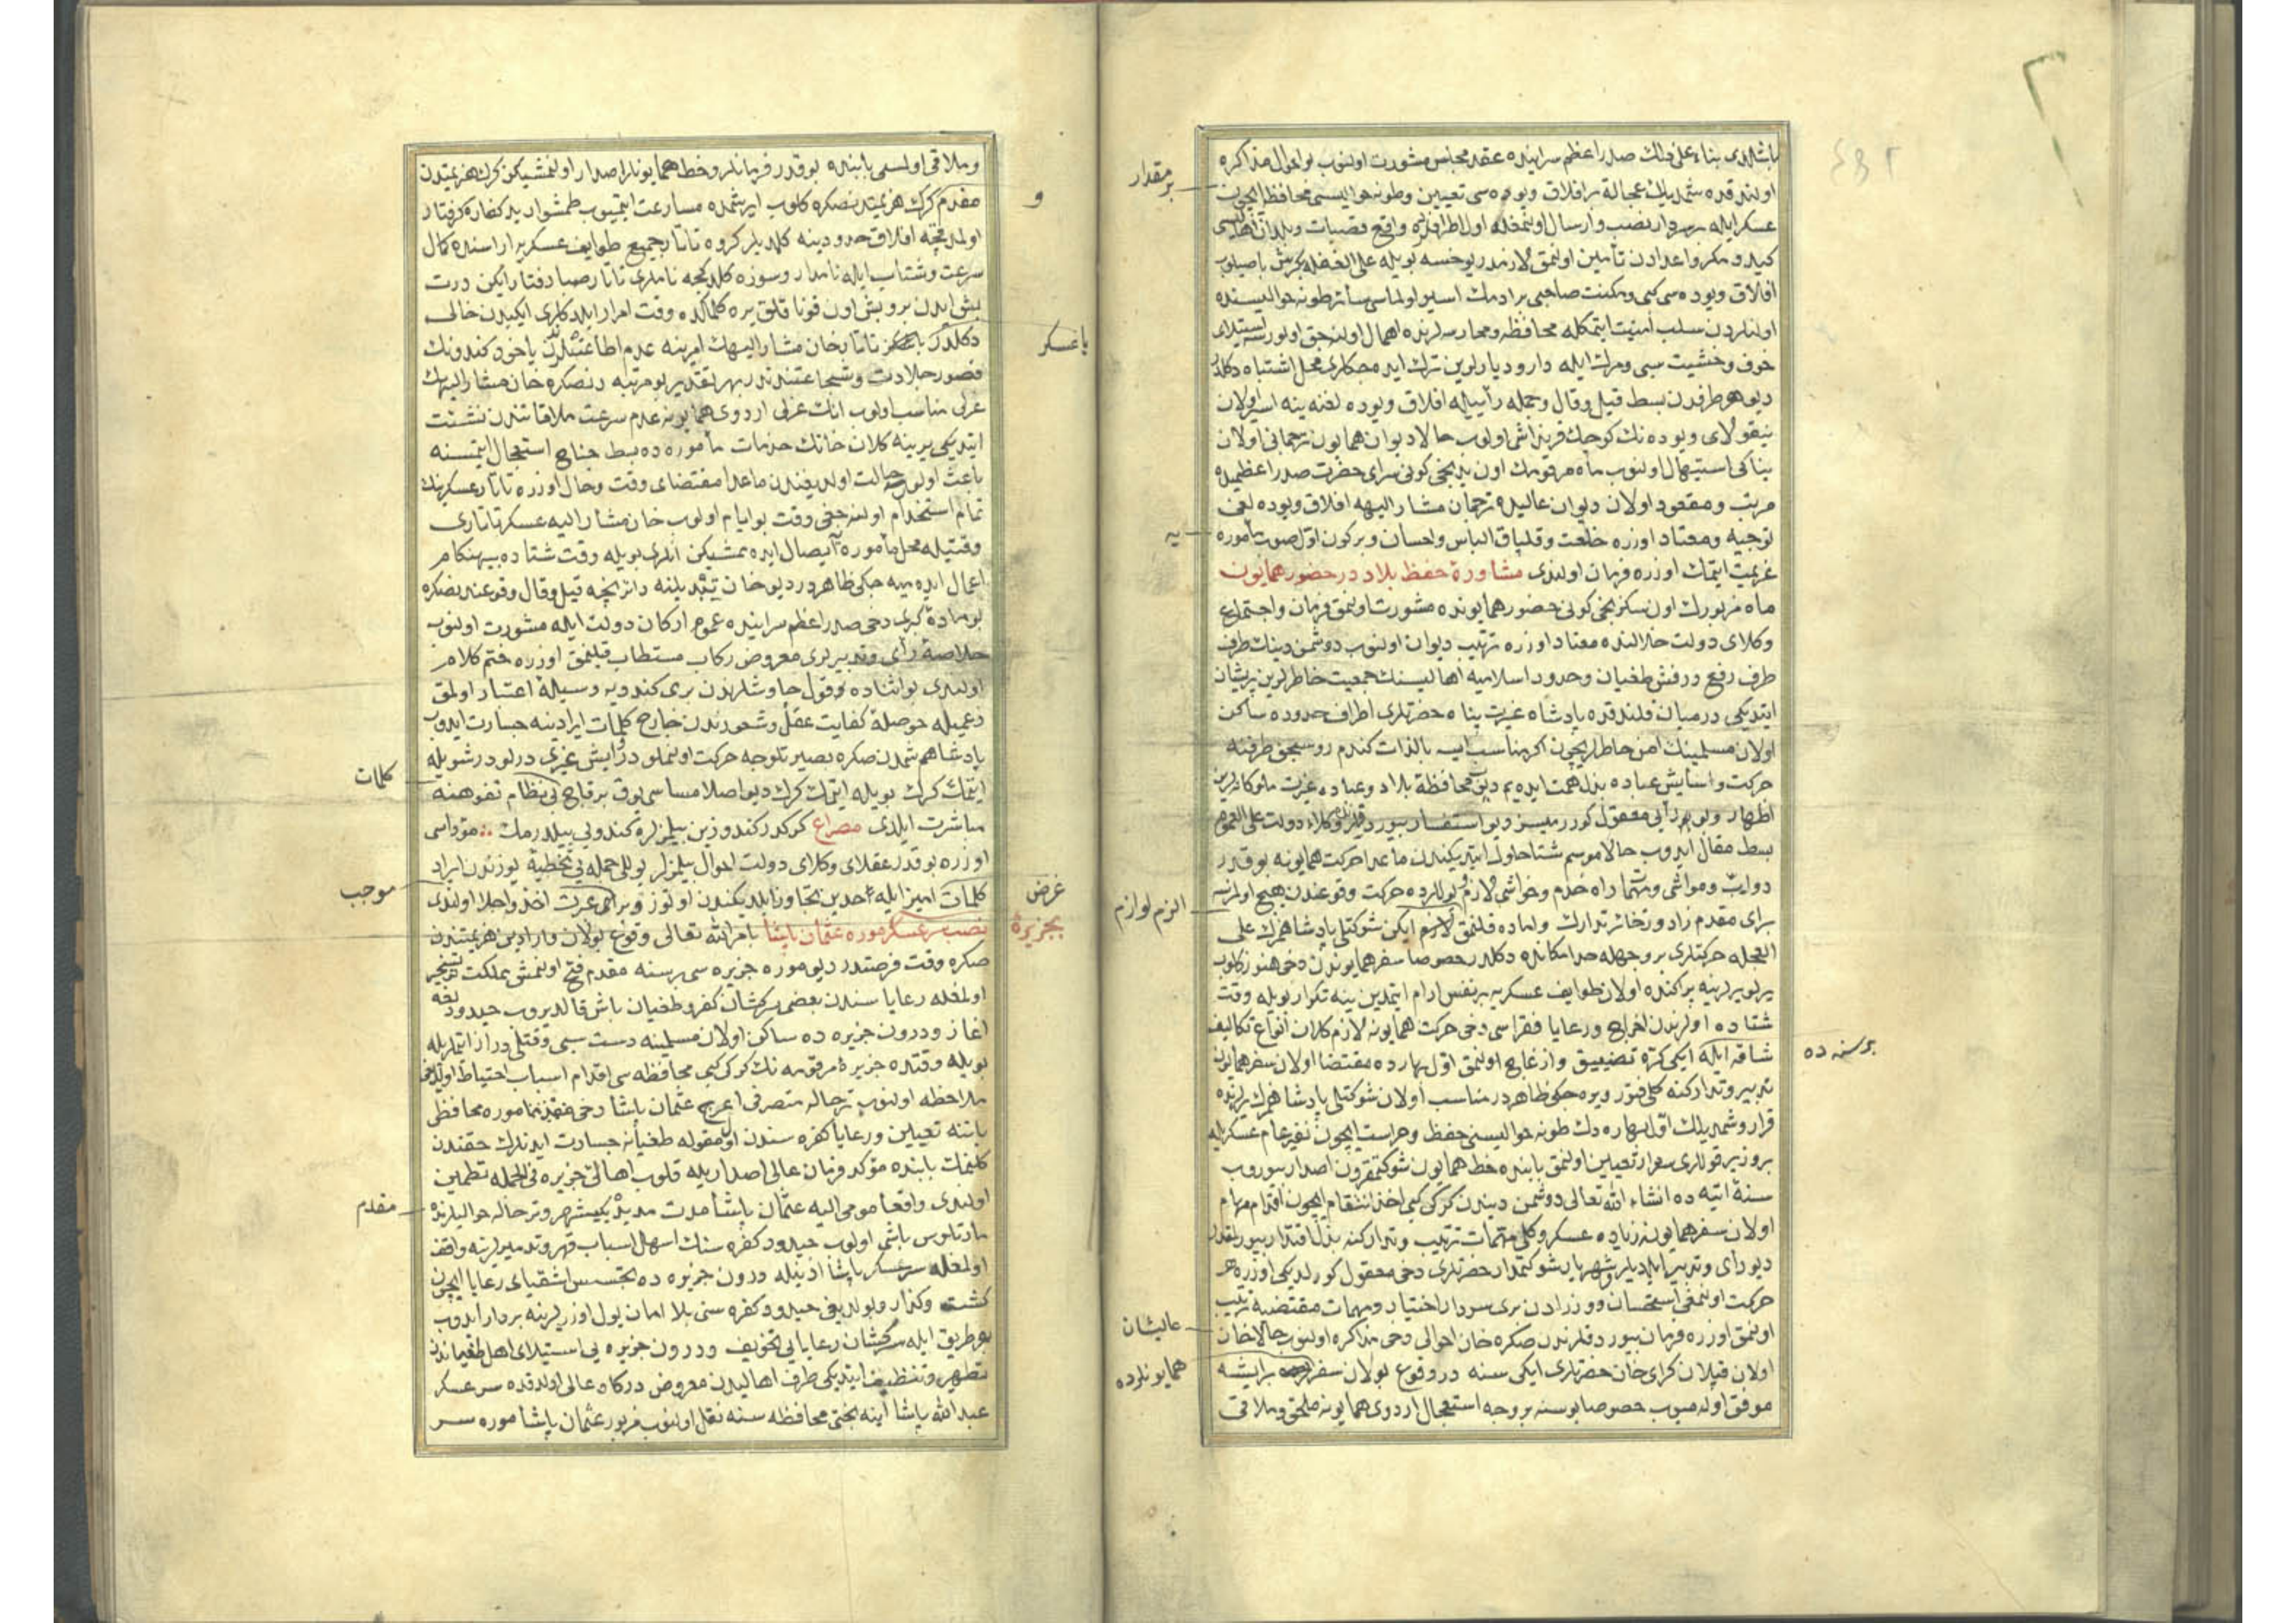 باشلدی بناء علی ذلك صدر اعظم سراینده عقد مجلس مشورت اولنوب بو احوال مذاکره
اولندقده شمدیلك عجالة بر افلاق ویوده سی تعیین وطونه حوالیسی محافظه ایچون
عسکر ایله سردار نصب وارسال اولنمغله اول اطرافلرده واقع قصبات وبلدان اهالیسی
کید ومکر واعدادن تأمین اولنمق لازمدر یوخسه بویله علی الغفله
افلاق ویوده سی کبی ومکنت صاحبی بر ادمك اسیر اولماسی سائر طونه حوالیسنده
اولنلردن سلب امنیت ایتمکله محافظه ومحارسه لرنده اهمال اولنه جق اولورسه استیلای
خوف وخشیت سبی ومرك ایله دار ودیارلرین ترك ایده جکلری محل اشتباه دکلدر
دیو هر طرفدن بسط قیل وقال وجمله رأییله افلاق ویوده لغنه ینه اسیر اولان
نیقولای ویوده نك کوچك قرنداشی اولوب حالا دیوان همایون ترجمانی اولان
یناکی استیهال اولنوب ماه مرقومك اون یدنجی کونی سرای حضرت صدر اعظمیده
مرتب ومعقود اولان دیوان عالیده ترجمان مشار الیهه افلاق ویوده لغی
توجیه ومعتاد اوزره خلعت وقلپاق الباس واحسان وبرکون اول صوب مأموره
عزیمت ایتمك اوزره فرمان اولندی مشاورۀ حفظ بلاد در حضور همایون
ماه مزبورك اون سکزنجی کونی حضور همایونده مشورت اولنمق فرمان واجتماع
وکلای دولت خلالنده معتاد اوزره ترتیب دیوان اولنوب دوشمن دینك طرف
طرف رفع درفش طغیان وحدود اسلامیه اهالیسنك جمعیت خاطرلرین پریشان
ایتدیکی در میان قلندقده پادشاه غیرت پناه حضرتلری اطراف حدوده ساکن
اولان مسلمینك امن خاطرلریچون اکر مناسب ایسه بالذات کندم روسجق طرفنه
حرکت واسایش عباده بذل همت ایده یم دیوب محافظۀ بلاد وعباده غیرت ملوکانه لرین
اظهار وبو رأیی معقول کوررمیسز دیو استفسار بیوردقلرنده وکلاء دولت علی العموم
بسط مقال ایدوب حالا موسم شتا حلول ایتدیکندن ماعدا حرکت همایونه بو قدر
دواب ومواشی ومهمات راه خدم وحواشی لازم بو یوللرده حرکت وقوعندن هیچ اولمزسه
برآی مقدم زاد وذخائر تدارك واماده قلنمق لازم ایکن شوکتلی پادشاهمزك علی
العجله حرکتلری بر وجهله حد امکانده دکلدر خصوصا سفر همایوندن دخی هنوز کلوب
یرلو یرلرینه پراکنده اولان طوایف عسکریه بر نفس ارام ایتمدین ینه تکرار بویله وقت
شتاده اولرندن اخراج ورعایا فقراسی دخی حرکت همایونه لازم کلان انواع تکالیف
شاقه ایله ایکی کره تضییق وازعاج اولنمق اول بهارده مقتضا اولان سفر همایون
تدبیر وتدارکنه کلی فتور ویره جکی ظاهردر مناسب اولان شوکتلی پادشاهمزك یرلرنده
قرار وشمدیلك اول بهاره دك طونه حوالیسنی حفظ وحراست ایچون نفیر عام عسکریله
بر وزیر قوللری سردار تعیین اولنمق بابنده خط همایون شوکتمقرون اصدار بیوروب
سنۀ اتیه ده انشاء الله تعالی دوشمن دیندن کرکی کبی اخذ انتقام ایچون اقدام مهام
اولان سفر همایونه زیاده عسکر وکلی مهمات ترتیب وتدارکنه بذل اقتدار بیورلمقدر
دیو رای وتدبیر ایلدیلر شهریار شوکتمدار حضرتلری دخی معقول کورلدیکی اوزره
حرکت اولنمغی استحسان ووزرادن بری سردار اختیار ومهمات مقتضیه ترتیب
اولنمق اوزره فرمان بیوردقلرندن صکره خان احوالی دخی مذاکره اولنوب حالا خان
اولان قپلان کرای خان حضرتلری ایکی سنه در وقوع بولان سفرلرده بر ایشه
موفق اوله میوب خصوصا بو سنه بر وجه استعجال اردوی همایونه ملحق وملاقی
بر مقدار
یه
الزم لوازم
بر سنه ده
عالیشان
همایونلرده
وملاقی اولمسی بابنده بو قدر فرمانلر وخط همایونلر اصدار اولنمشیکن کرك هزیمتدن
مقدم کرك هزیمتدنصکره کلوب ایرشمده مسارعت ایتمیوب طمشوار ید کفاره کرفتار
اولدقجه افلاق حدودینه کلدیلر کروه تاتار جمیع طوایف عسکریه اراسنده کمال
سرعت وشتاب ایله نامدار وسوزه کلدکجه ناملری تاتار صبا رفتار ایکن درت
بش ایدن برو بش اون قوناقلق یره کلمکده وقت امرار ایلدکلری ایکیدن خالی
دکلدر یا تاتار خان مشار الیهك امرینه عدم اطاعتدندر یاخود کندونك
قصور جلادت وشجاعتندندر بهر تقدیر بو مرتبه دنصکره خان مشار الیهك
عزلی مناسب اولوب انك عزلی اردوی همایونه عدم سرعت ملاقاتندن نشئت
ایتدیکی یرینه کلان خانك خدمات مأموره ده بسط جناح استعجال ایتمسنه
باعث اولور حالت اولدیغندن ماعدا مقتضای وقت وحال اوزره تاتار عسکرینك
تمام استخدام اولنه جغی وقت بو ایام اولوب خان مشار الیه عسکر تاتاری
وقتیله محل مأموره ایصال ایده ممشیکن انلری بویله وقت شتاده بیهنکام
اعمال ایده میه جکی ظاهردر دیو خان تبدیلنه دائر نیجه قیل وقال وقوعندنصکره
بو ماده کری دخی صدر اعظم سراینده عموم ارکان دولت ایله مشورت اولنوب
خلاصۀ رأی وتدبیرلری معروض رکاب مستطاب قیلنمق اوزره ختم کلام
اولندی بو اثناده وقول چاوشلرندن بری کندویه وسیلۀ اعتبار اولمق
زعمیله حوصلۀ کفایت عقل وشعورندن خارج کلمات ایرادینه جسارت ایدوب
پادشاهم شمدنصکره بصیرتلوجه حرکت اولنملودر ایش غیری درلودر شویله
ایتمك کرك بویله ایتمك کرك دیو اصلا مساسی یوق بر قاچ بی نظام تفوهنه
مباشرت ایلدی مصراع کوکدر کندوزین بیلمزلره کندولی بیلدرمك ؞ مؤداسی
اوزره بو قدر عقلای وکلای دولت احوال بیلمزلر یوللو جمله یی تخطیه یوزندن ایراد
کلمات امیز ایله حدین تجاوز ایلدیکندن اوتوز عبرت اخذ واجلا اولندی
نصب سر عسکر موره عثمان پاشا بامر الله تعالی وقوع بولان وارادین هزیمتندن
صکره وقت فرصتدر دیو موره جزیره سی بر سنه مقدم فتح اولنمش مملکت نو تسخیر
اولمغله رعایاسندن بعضی سرکشان کفر وطغیان باش قالدیروب حیدودلغه
اغاز ودرون جزیره ده ساکن اولان مسلمینه دست سبی وقتلی دراز ایتملریله
بویله وقتده جزیرۀ مرقومه نك کرکی کبی محافظه سی اقدام اسباب احتیاط اولدیغی
ملاحظه اولنوب ترحاله متصرفی اعرج عثمان پاشا دخی موره محافظی
باشنه تعیین ورعایا کفره سندن اول مقوله طغیانه جسارت ایدنلرك حقندن
کلنمك بابنده مؤکد فرمان عالی اصداریله قلوب اهالئ جزیره فی الجمله تطمین
اولندی واقعا مومی الیه عثمان پاشا مدت مدیده یکیشهر وترحاله حوالیلرنده
مارتلوس باشی اولوب حیدود کفره سنك اسهل اسباب قهر وتدمیرلرینه واقف
اولمغله سر عسکر پاشا اذنیله درون جزیره ده تجسس اشقیای رعایا ایچون
کشت وکذار وبولدیغی حیدود کفره سنی بلا امان یول اوزرلرینه بردار ایدوب
بو طریق ایله سرکشان رعایایی تخویف ودرون جزیره یی استیلای اهل طغیاندن
تطهیر وتنظیف ایتدیکی طرف اهالیدن معروض درکاه عالی اولدقده سر عسکر
عبد الله پاشا اینه بختی محافظه سنه نقل اولنوب مزبور عثمان پاشا موره سر
و
یا عسکر
غرض
بجزیرۀ
کلمات
موجب
مقدم